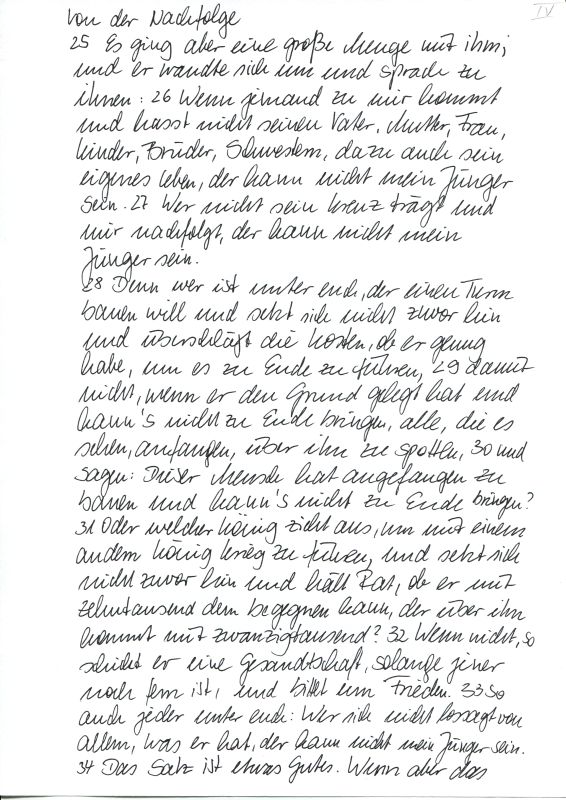 IV
Von der Nachfolge
25 Es ging aber eine große Menge mit ihm;
und er wandte sich um und sprach zu
ihnen: 26 Wenn jemand zu mir kommt
und hasst nicht seinen Vater, Mutter, Frau,
Kinder, Brüder, Schwestern, dazu auch sein
eigenes Leben, der kann nicht mein Jünger
sein. 27 Wer nicht sein Kreuz trägt und
mir nachfolgt, der kann nicht mein
Jünger sein.
28 Denn wer ist unter euch, der einen Turm
bauen will und setzt sich nicht zuvor hin
und überschlägt die Kosten, ob er genug
habe, um es zu Ende zu führen, 29 damit
nicht, wenn er den Grund gelegt hat und
kann's nicht zu Ende bringen, alle, die es
sehen, anfangen, über ihn zu spotten, 30 und
sagen: Dieser Mensch hat angefangen zu
bauen und kann's nicht zu Ende bringen?
31 Oder welcher König zieht aus, um mit einem
andern König Krieg zu führen, und setzt sich
nicht zuvor hin und hält Rat, ob er mit
zehntausend dem begegnen kann, der über ihn
kommt mit zwanzigtausend? 32 Wenn nicht, so
schickt er eine Gesandtschaft, solange jener
noch fern ist, und bittet um Frieden. 33 So
auch jeder unter euch: Wer sich nicht lossagt von
allem, was er hat, der kann nicht mein Jünger sein.
34 Das Salz ist etwas Gutes. Wenn aber das